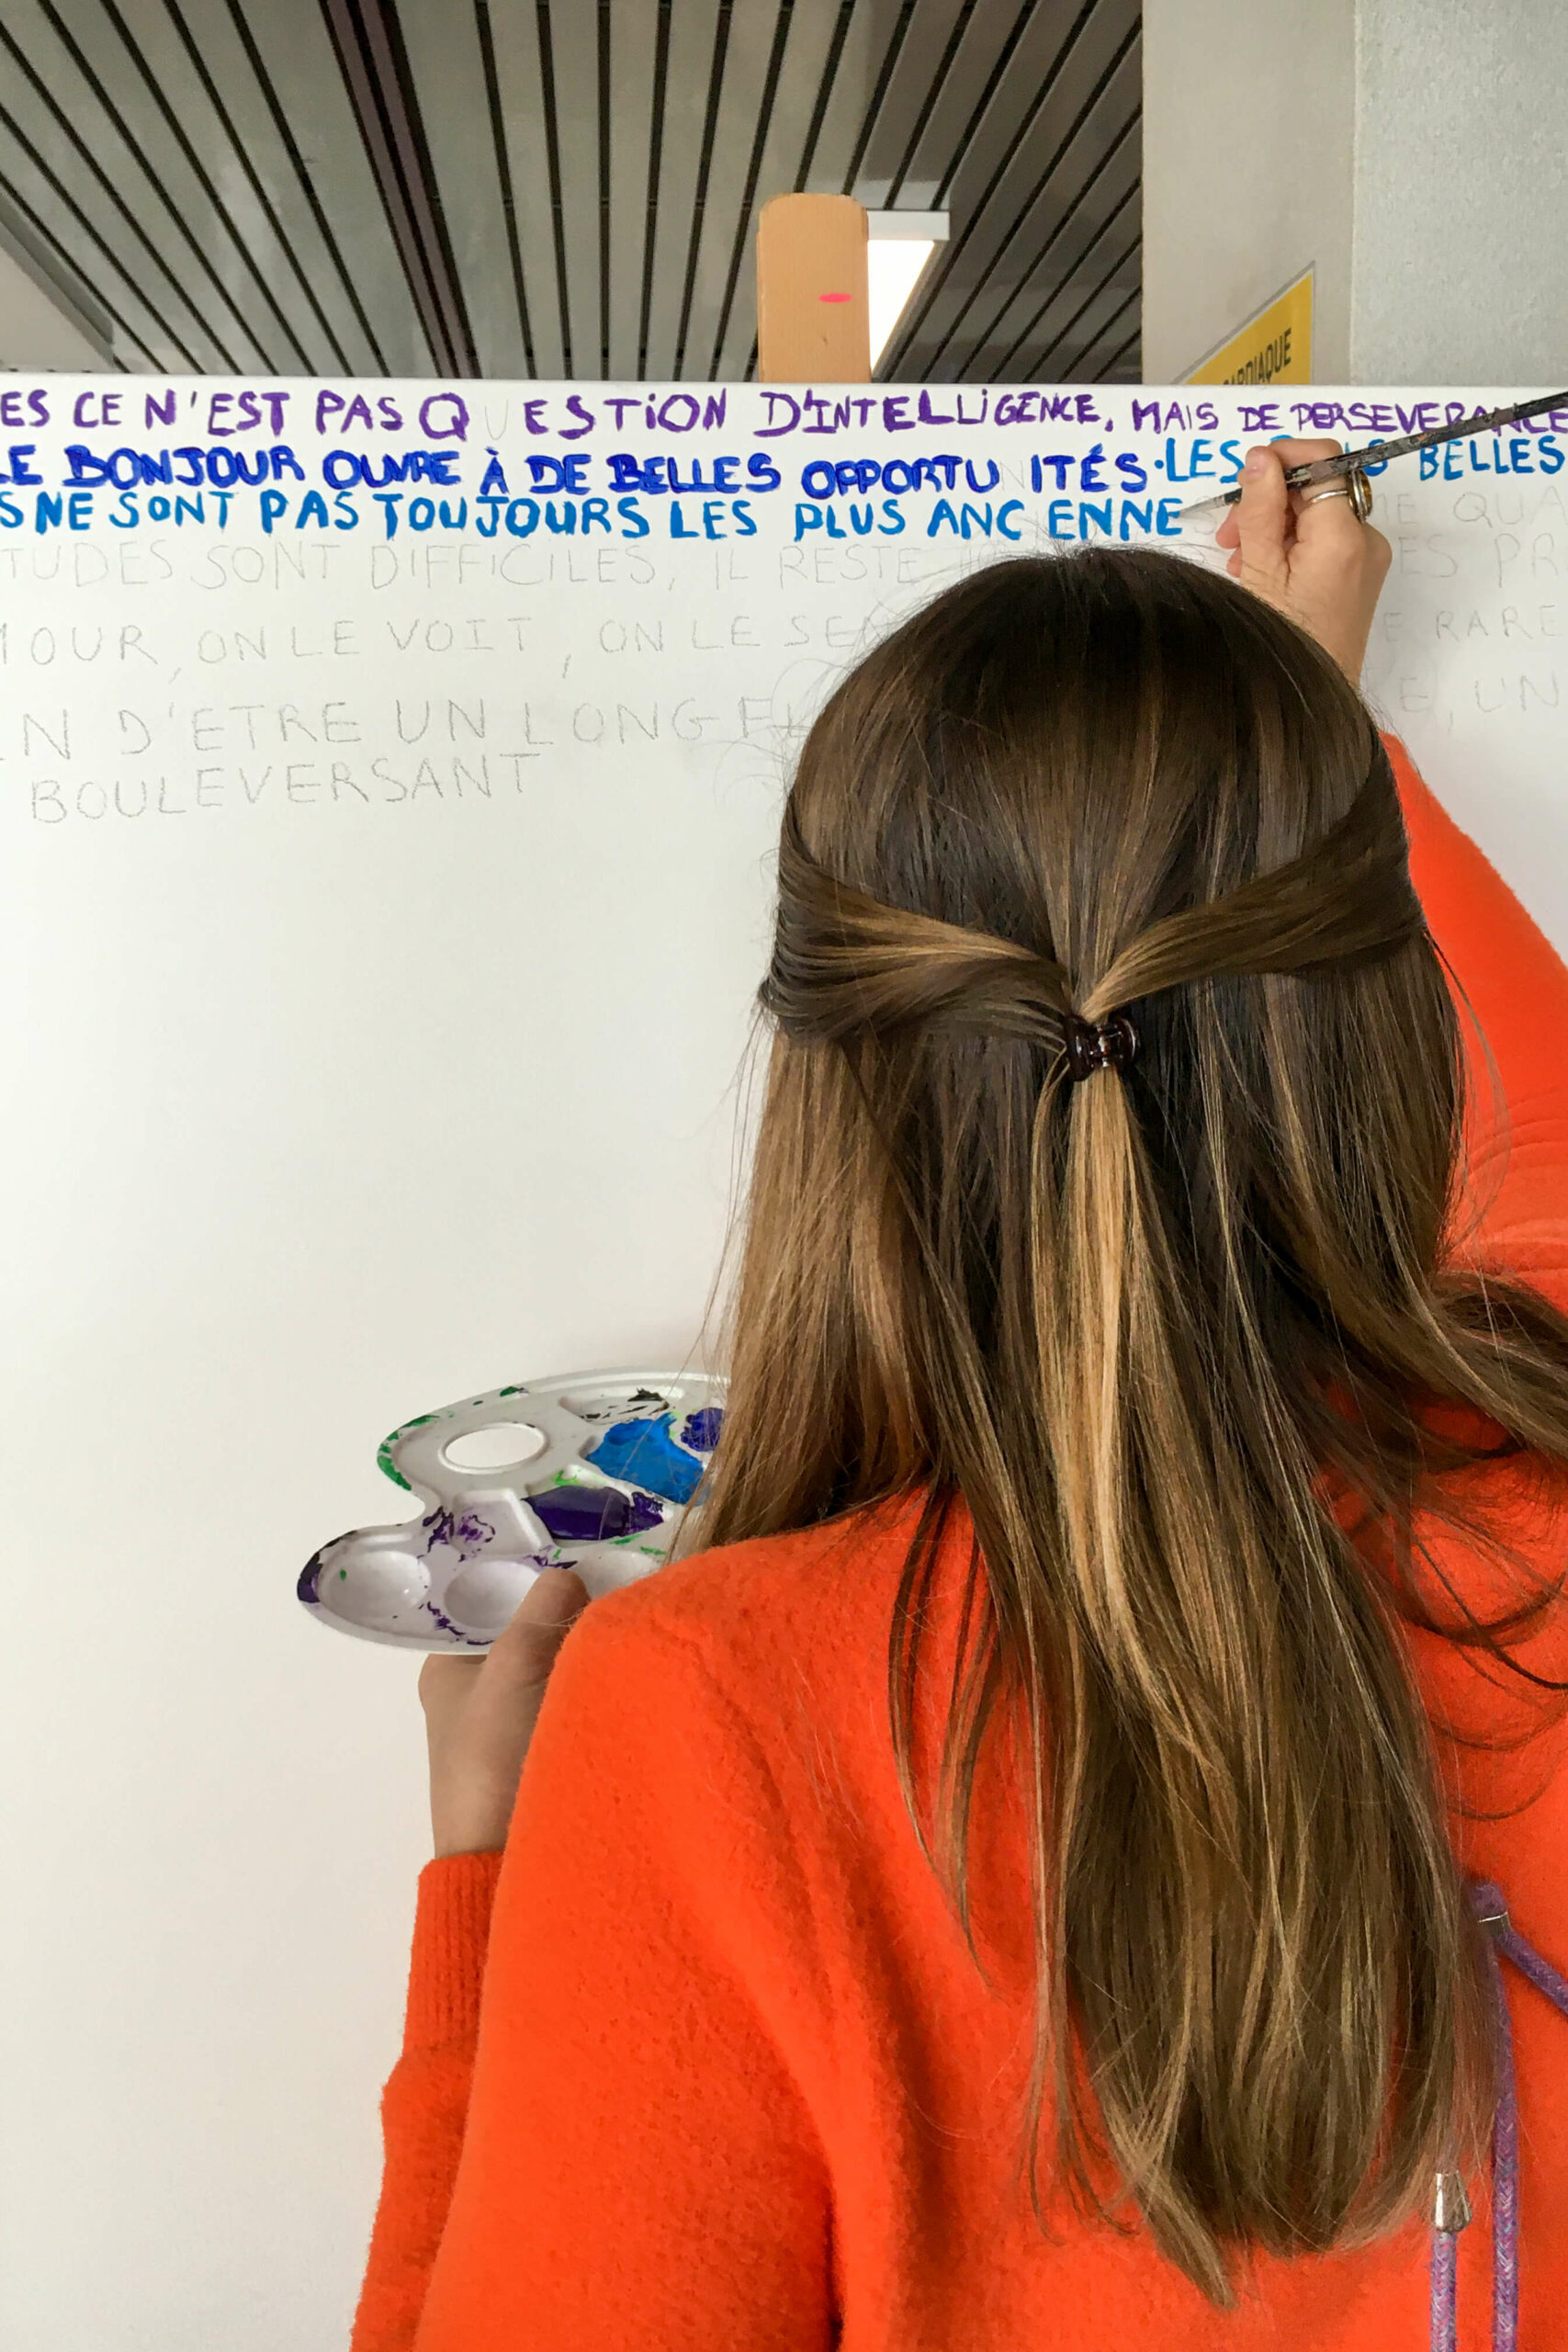 CARDIAQUE
ES CE N'EST PAS Q U ESTiON D'INTELLiGENCE, MAIS DE PERSEVERANCE
LE BONJOUR OUVRE À DE BELLES OPPORTU ITÉS·LES BELLES
S NE SONT PAS TOUJOURS LES PLUS ANC ENNE QUA
TUDES SONT DIFFICILES, IL RESTE ES PR
MOUR, ON LE VOIT, ON LE SE E RARE
N D'ETRE UN LONG FL E, UN
BOULEVERSANT